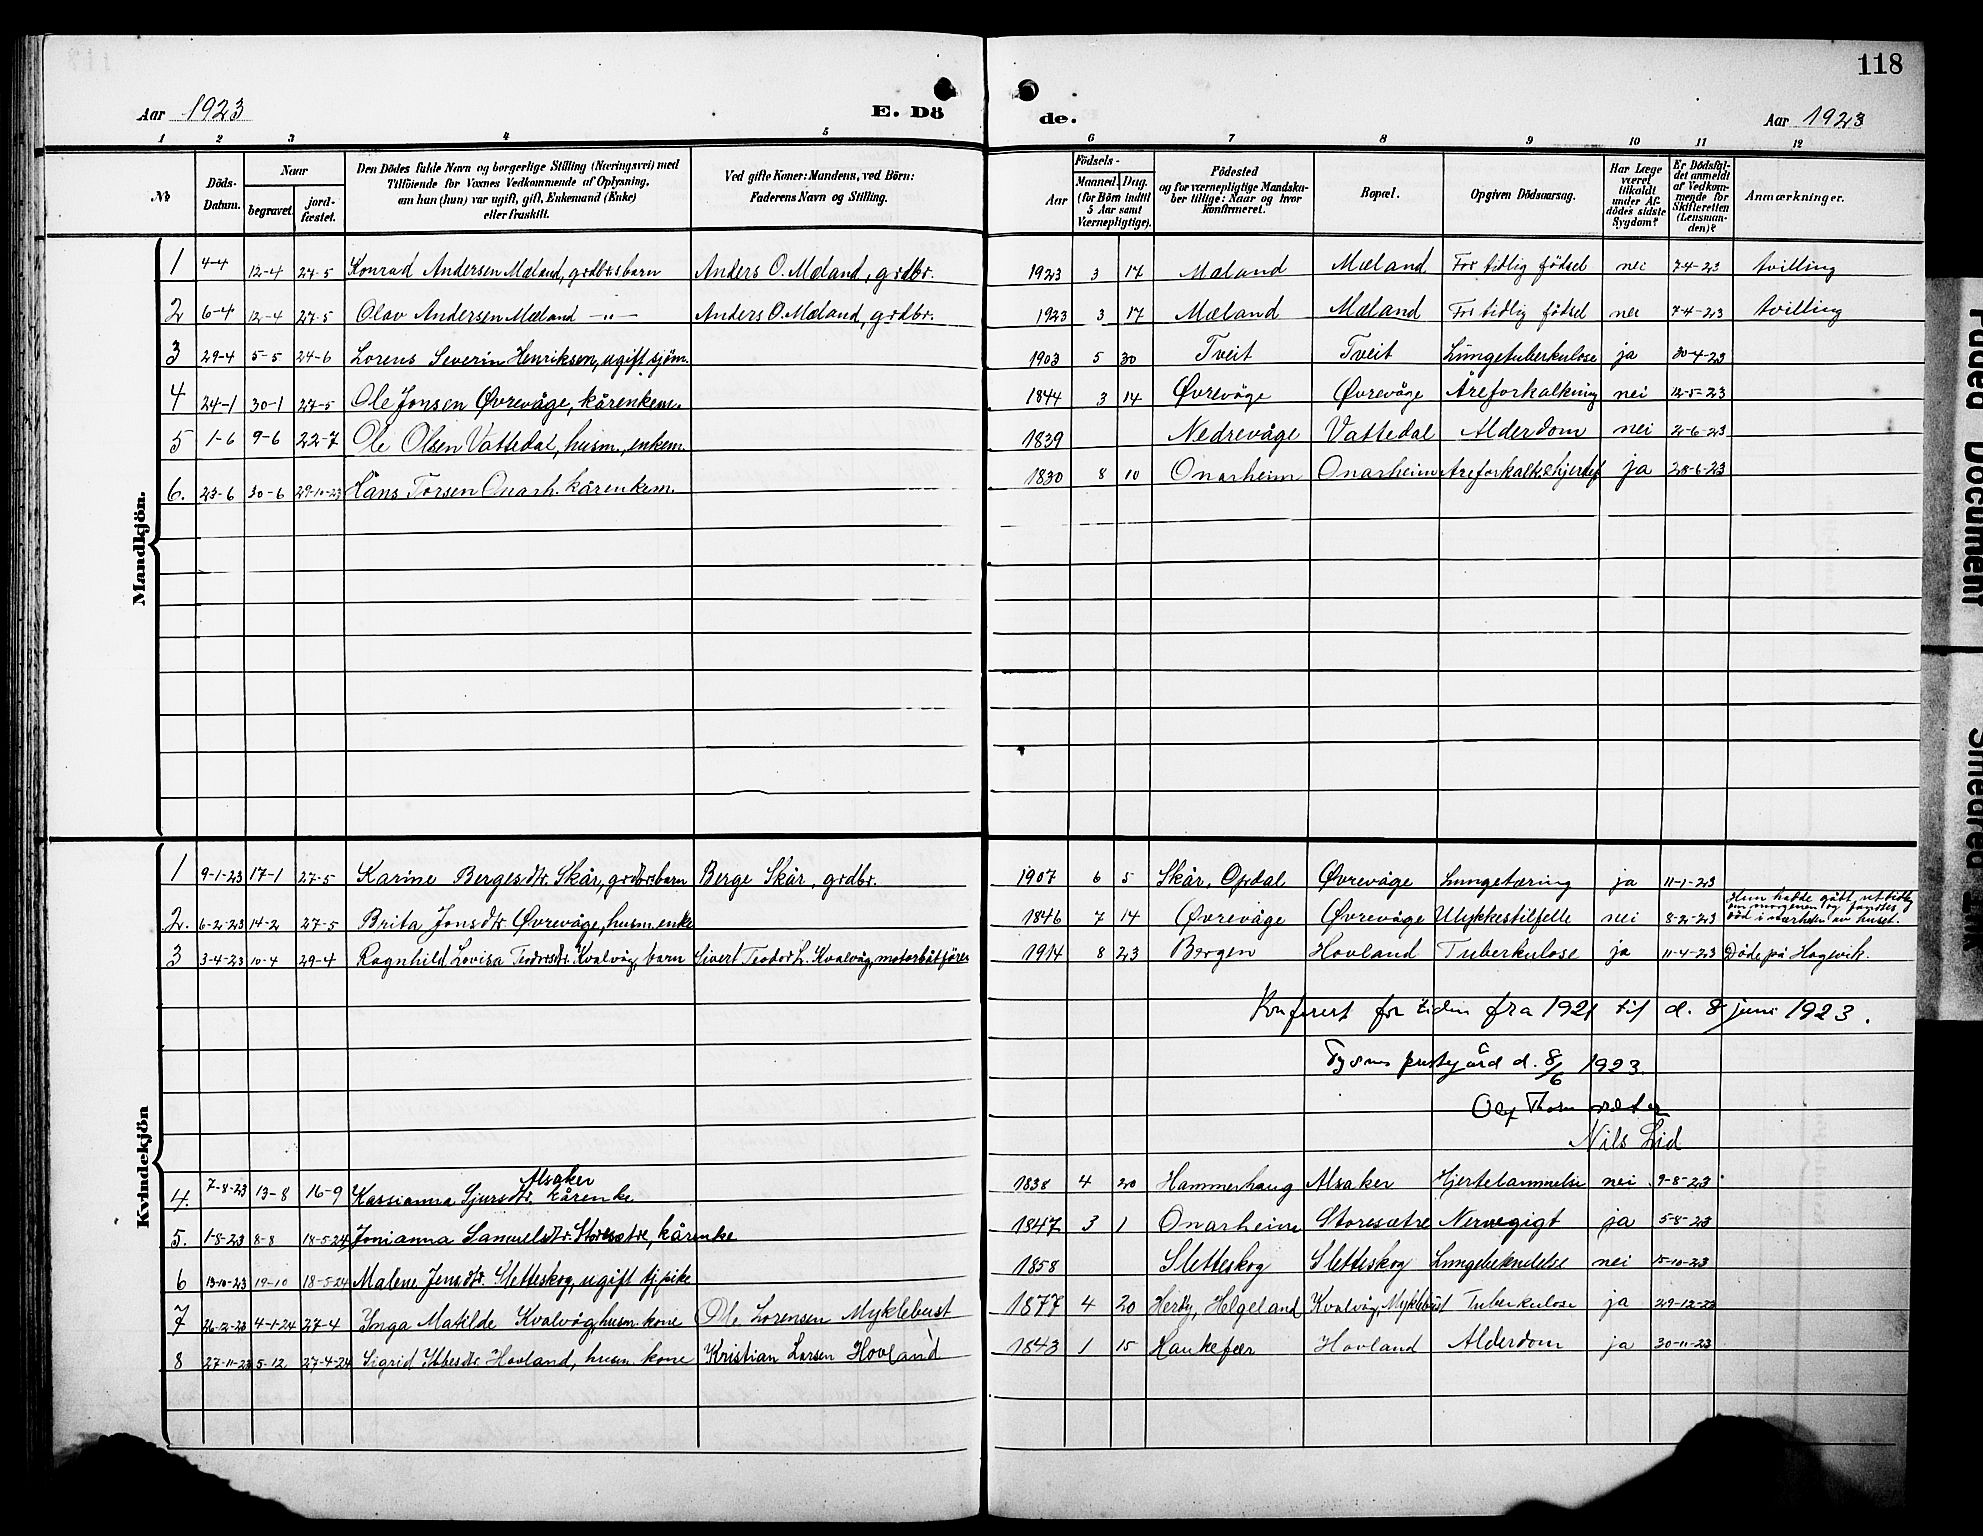 118
Aar 1923 E. Dö de. Aar 1923
1 2 3 4 5 6 7 8 9 10 11 12
No
Döds-Datum.
Naar
begravet.
jord-fæstet.
Den Dödes fulde Navn og borgerlige Stilling (Næringsvei) med Tilföiende for Voxnes Vedkommende af Oplysning, om hun (hun) var ugift, gift, Enkemand (Enke) eller fraskilt.
Ved gifte Koner: Mandens, ved Börn: Faderens Navn og Stilling.
Födsels-
Aar
Maaned. Dag.
(for Börn indtil 5 Aar samt Værnepligtige).
Födested og for værnepligtige Mandska-ber tillige: Naar og hvor konfirmeret.
Bopæl.
Opgiven Dödsaarsag.
Har Læge været tilkaldt under Af-dödes sidste Sygdom?
Er Dödsfal-det anmeldt af Vedkom-mende for Skifteretten (Lensman-den)?
Anmærkninger.
Mandkjön.
1 4-4 12-4 27-5 Konrad Andersen Mæland, grdbrsbarn Anders O. Mæland, grdbr. 1923 3 17 Mæland Mæland For tidlig födsel nei 7-4-23 tvilling
2 6-4 12-4 27-5 Olav Andersen Mæland -"- Anders O. Mæland, grdbr. 1923 3 17 Mæland Mæland For tidlig födsel nei 7-4-23 tvilling
3 29-4 5-5 24-6 Lorens Severin Henriksen, ugift sjöm. 1903 5 30 Tveit Tveit Lungetuberkulose ja 30-4-23
4 24-1 30-1 27-5 Ole Jonsen Øvrevåge, kårenkem. 1844 3 14 Øvrevåge Øvrevåge Åreforkalkning nei 12-5-23
5 1-6 9-6 22-7 Ole Olsen Vattedal, husm., enkem. 1839 Nedrevåge Vattedal Alderdom nei 2-6-23
6. 23-6 30-6 29-10-23 Hans Torsen Onarh. kårenkem. 1830 8 10 Onarheim Onarheim Åreforkalk. & hjertef ja 28-6-23
Kvindekjön
1 9-1-23 17-1 27-5 Karine Bergesdtr. Skår, grdbrsbarn Berge Skår, grdbr. 1907 6 5 Skår, Opdal Øvrevåge Lungetæring ja 11-1-23
2. 6-2-23 14-2 27-5 Brita Jonsdtr. Øvrevåge, husm.enke 1846 7 14 Øvrevåge Øvrevåge Ulykkestilfelle nei 8-2-23 Hun hadde gått ut tidlig om morgenen og fandtes död i nærheten av huset.
3 3-4-23 10-4 29-4 Ragnhild Lovisa Teodorsdtr. Kvalvåg, barn Sivert Teodor L. Kvalvåg, motorbåtförer 1914 8 23 Bergen Hovland Tuberkulose ja 11-4-23 Döde på Hagevik.
Konferert for tiden fra 1921 til d. 8 juni 1923.
Tysnes prestegård d. 8/6 1923.
Nils Lid
4. 7-8-23 13-8 16-9 Kassianna Sjursdtr. Alsaker kårenke 1838 4 20 Hammerhaug Alsaker Hjertelammelse nei 9-8-23
5. 1-8-23 8-8 18-5-24 Jonianna Samuelsdtr. Storesætre, kårenke 1847 3 1 Onarheim Storesætre Nervegigt ja 5-8-23
6 13-10-23 19-10 18-5-24 Malene Jensdtr. Sletteskog, ugift tj.pike 1858 Sletteskog Sletteskog Lungebetendelse nei 15-10-23
7 26-12-23 4-1-24 27-4 Inga Matilde Kvalvåg, husm. kone Ole Lorensen Myklebust 1877 4 20 Herøy, Helgeland Kvalvåg, Myklebust Tuberkulose ja 29-12-23
8 27-11-23 5-12 27-4-24 Sigrid Ibbesdtr. Hovland, husm. kone Kristian Larsen Hovland 1843 1 15 Haukefær Hovland Alderdom ja 30-11-23
Faded Document
Smeared Ink